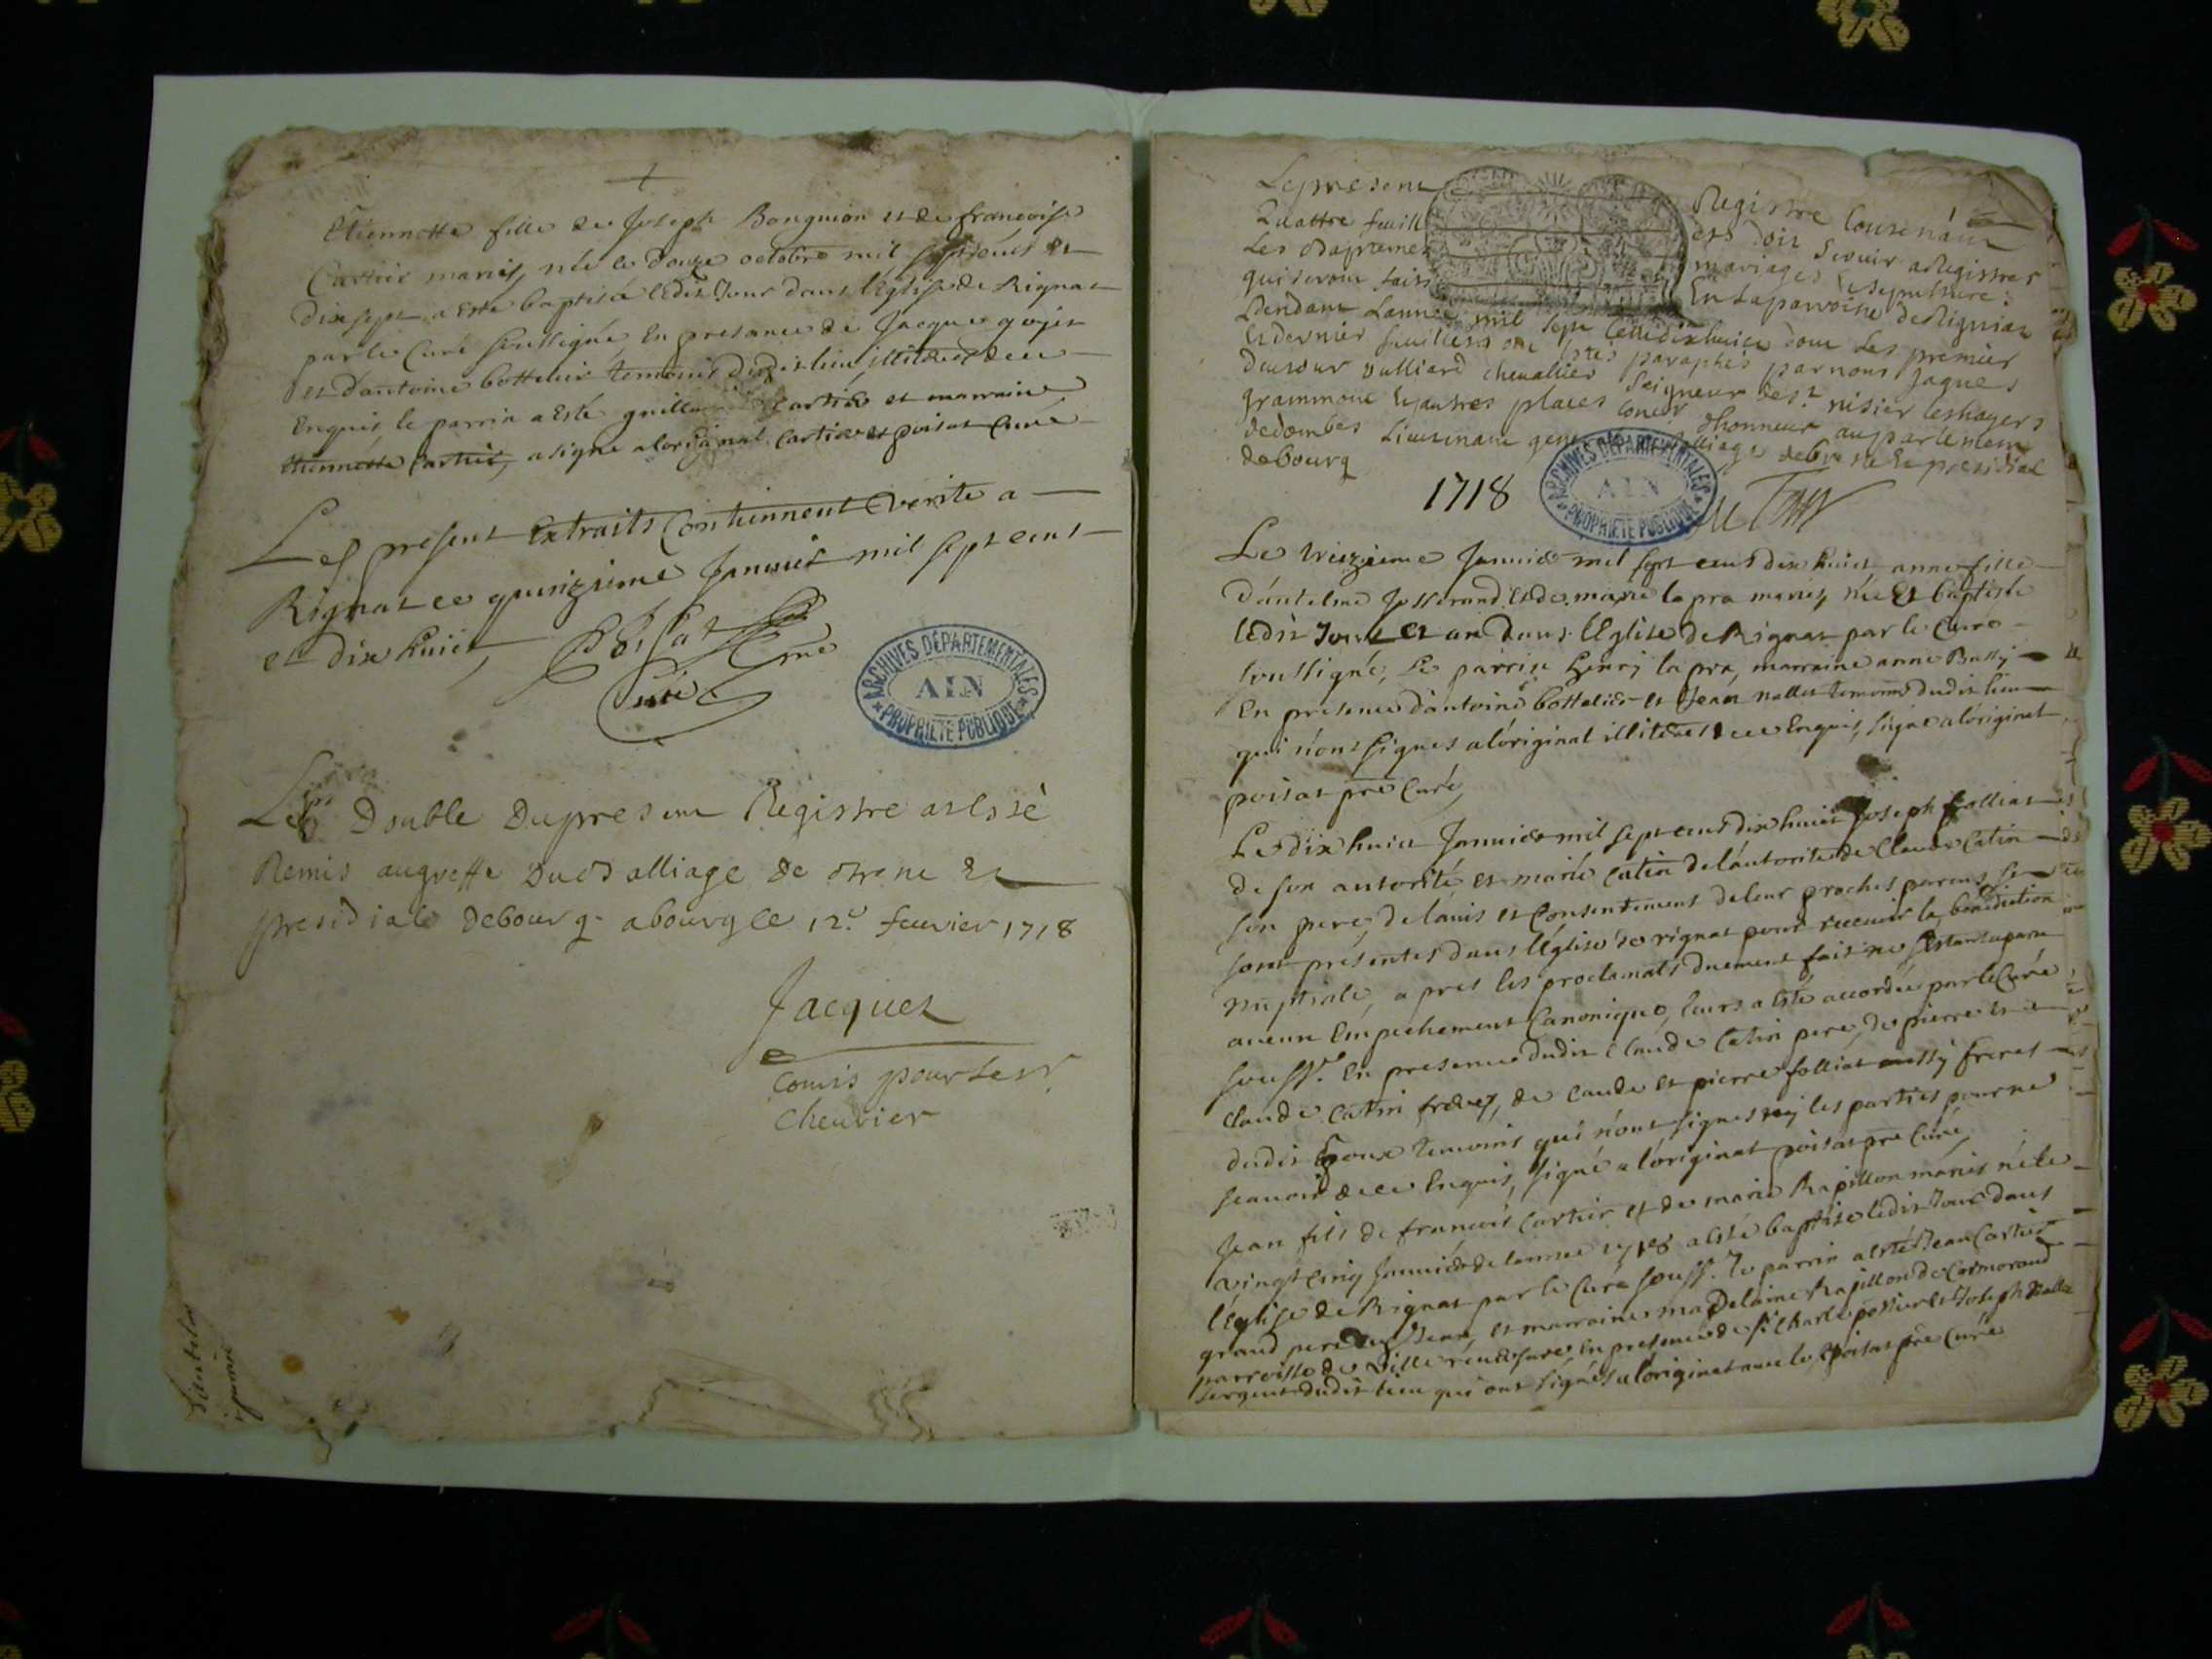 Etiennette fille de Joseph Bonguion et de francoise
Cartier mariés, née le douze octobre mil sept cents et
dix sept a esté baptisée ledit Jour dans l'église de Rignat
par le Curé soussigné En presance de Jacque goyet
et d'antoine bottelier temoins dudit lieu illiteres de ce
Enquis, le parrin a esté Cartier et marraine
etiennette Cartier, a signé a l'original. Cartier et poisat Curé
Les present Extraits Contiennent verité a
Rignat ce quinzieme Janvier mil sept cent
et dix huict Poisat pre
Curé
ARCHIVES DÉPARTEMENTALES
AIN
PROPRIÉTÉ PUBLIQUE
Le Double Du present Registre a esté
Remis au greffe Du Balliage de Bresse Et
presidial de bourg a bourg ce 12e feuvrier 1718
Jacquet
Comis pour le sr
Cheuvier
Le present Registre Contenant
Quattre feuillets doit servir a Registrer
Les Baptemes mariages Et sepulture
qui seront faits En La parroisse de Rignat
Pendant Lannée mil sept Cent dix huict dont Les premier
Et dernier feuillets ont estes paraphés par nous Jaques
vulliard chevallier Seigneur de St nisier
grammont Et autres places Coner d'honneur au parlement
de dombes Lieutenant Balliage de bresse Et presidial
de Bourg
1718
ARCHIVES DÉPARTEMENTALES
AIN
PROPRIÉTÉ PUBLIQUE
Le treizieme Janvier mil sept cent dix huict anne fille
d'antelme Josserand et de marie la pra mariés, née Et baptisée
ledit Jour et an dans l'Eglise de Rignat par le Curé
soussigné, Le parrin henry la pra, marraine anne Bussy
En présence d'antoine bottelier et Jean nallet temoins dudit lieu
qui n'ont signes a l'original illiteres de ce Enquis, signé a l'original
poisat pre Curé,
Le dix huict Janvier mil sept cent dix huict Joseph folliat
de son autorité et marie Catin de l'autorité de Claude Catin
son pere, de l'avis et Consentement de leur proches parens se
sont présentes dans l'Église de rignat pour recevoir la bénédiction
nuptiale, apres les proclamats duement fait ne s'estant apparu
aucun Empechement Canonique, leurs a esté accordée par le Curé
souss. En presence dudit Claude Catin pere, de pierre et
Claude Catin freres, de Caude et pierre folliat aussy freres
dudit Epoux temoins qui n'ont signes ny les parties pour ne
scavoir de ce Enquis, signé a l'original poisat pre Curé,
Jean fils de francois Cartier et de marie Rapillon mariés né le
vingt Cinq Janvier de l'année 1718 a esté baptisé ledit Jour dans
l'Église de Rignat par le Curé souss. Le parrin a esté Jean Cartier
grand pere dudit Jean, et marraine madelaine Rapillon de Cormorand
parroisse de ville reversure, En presence de Sr Charle possier et Joseph nallet
sergent dudit lieu qui ont signés a l'original avec le poisat pre Curé